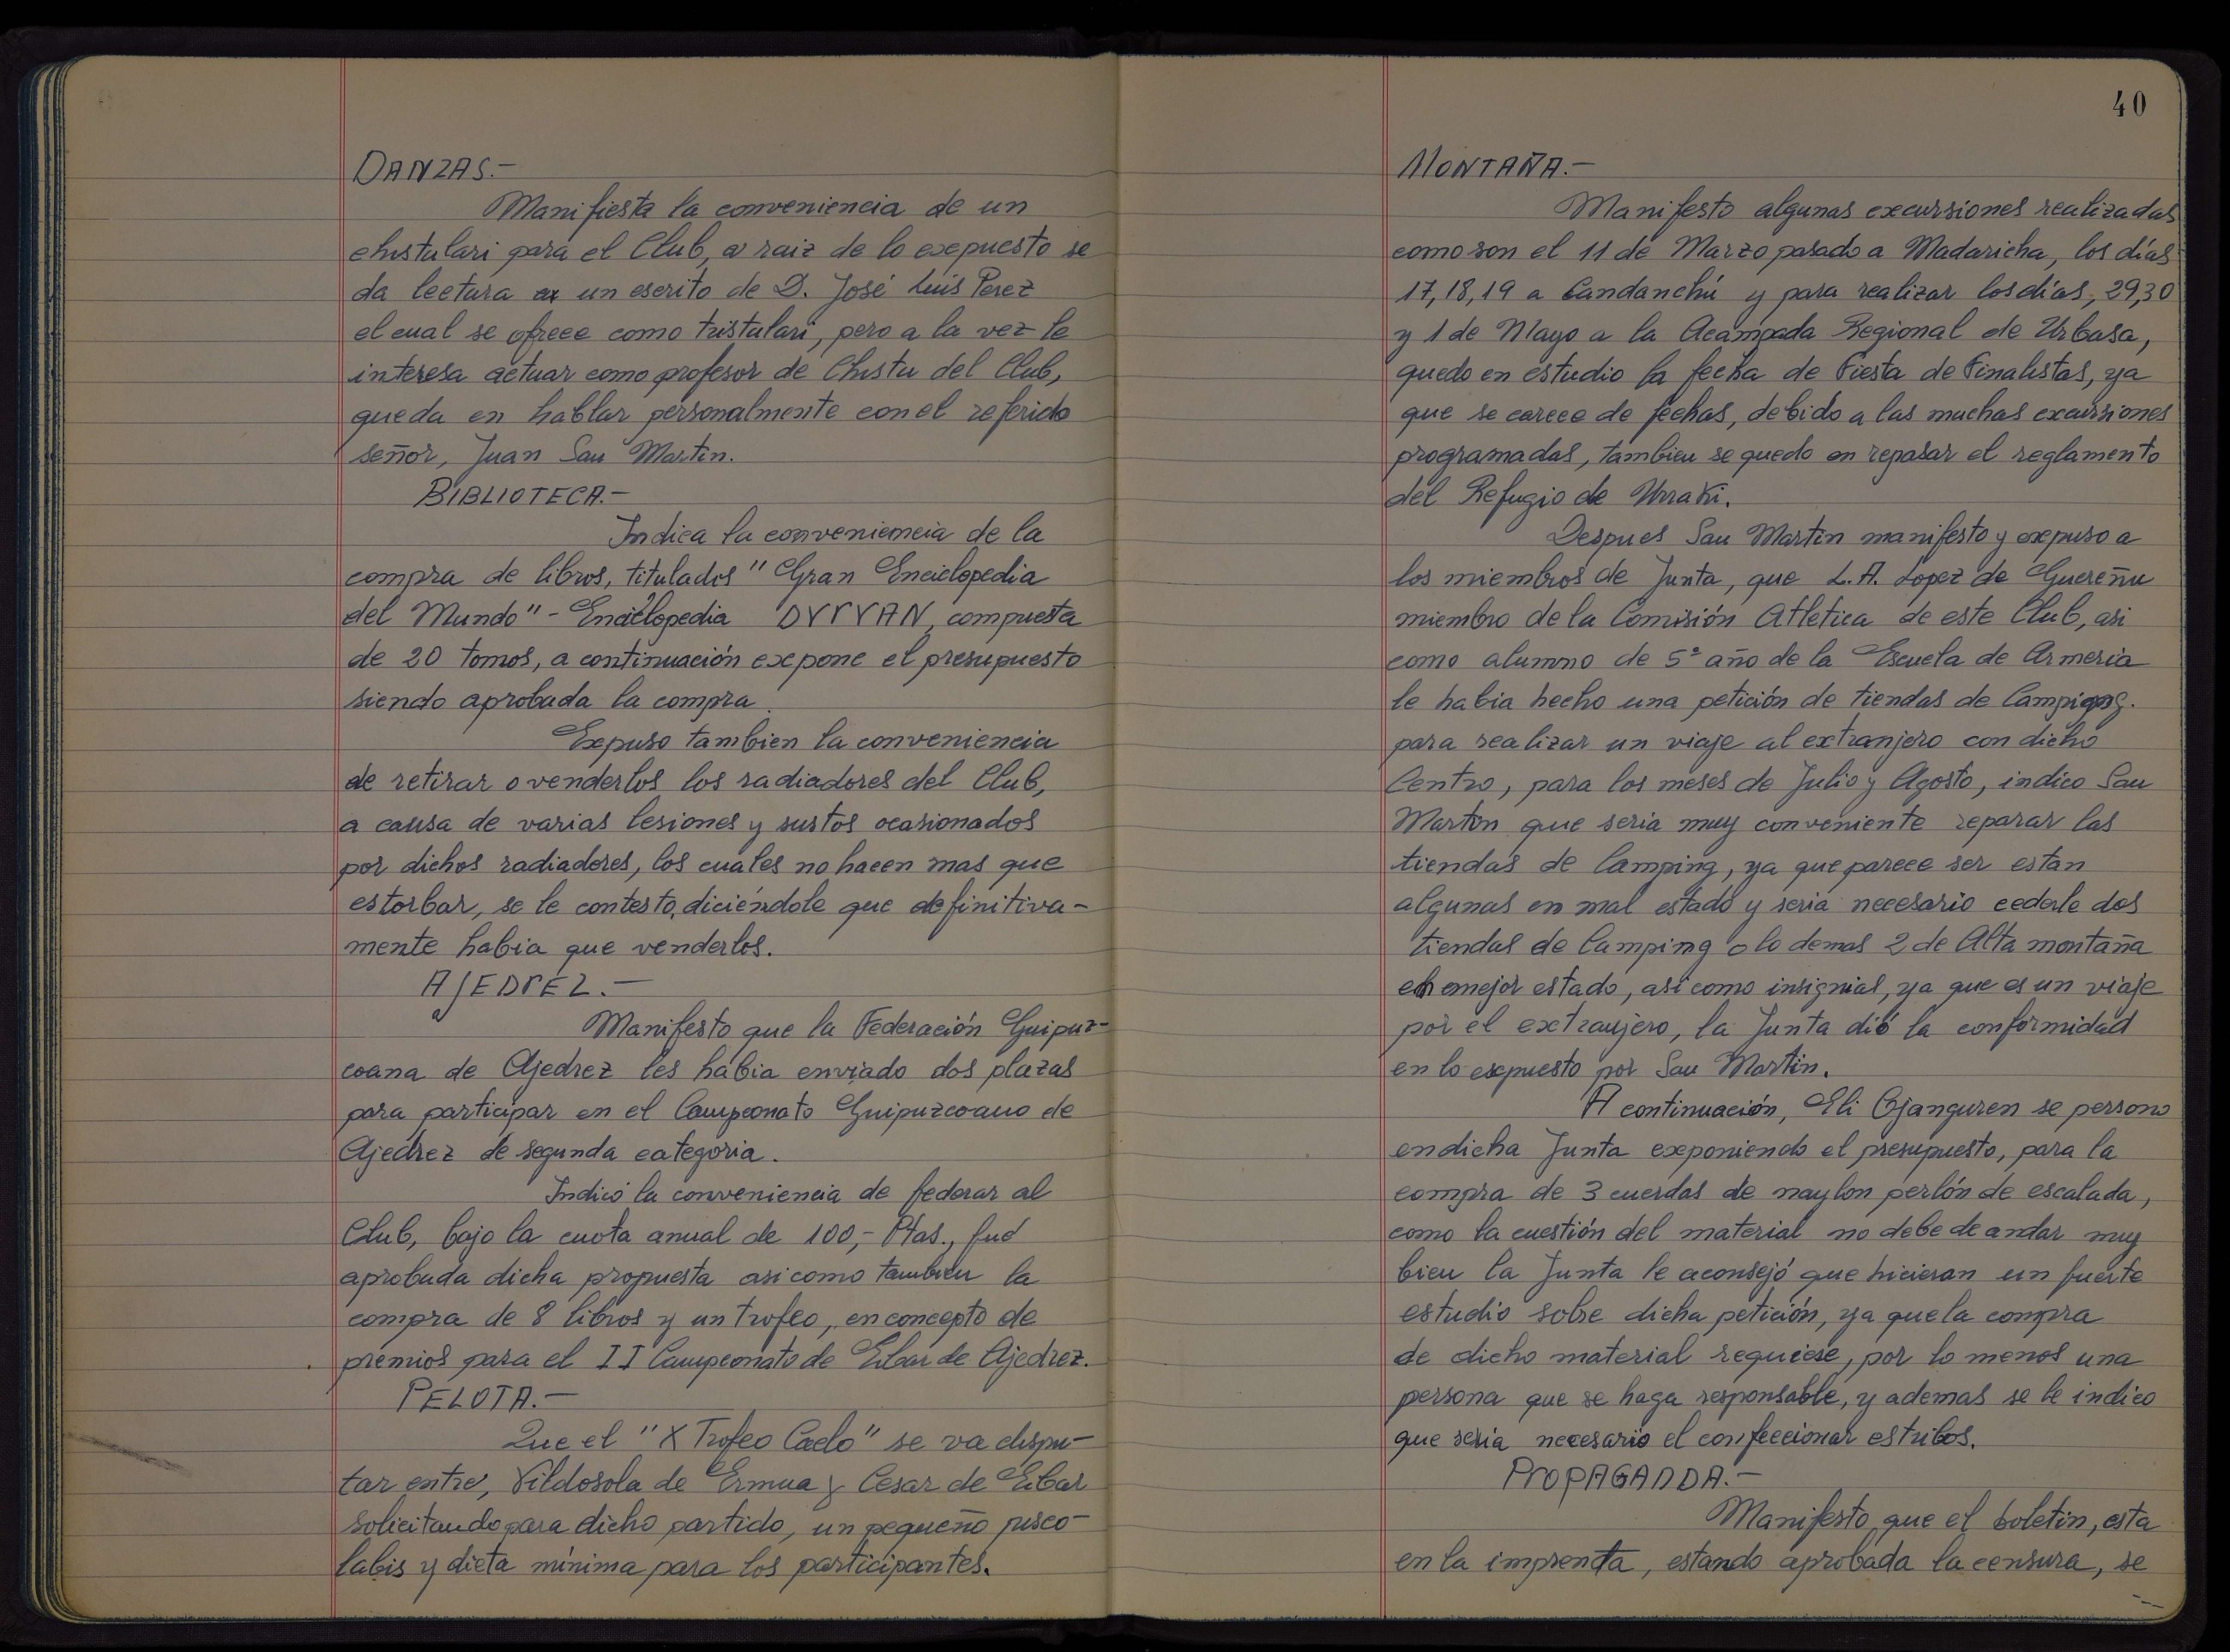 DANZAS.-
Manifiesta la conveniencia de un
chistulari para el Club, a raiz de lo expuesto se
da lectura a un escrito de D. José Luis Perez
el cual se ofrece como txistulari, pero a la vez le
interesa actuar como profesor de Chistu del Club,
queda en hablar personalmente con el referido
señor, Juan San Martin.
BIBLIOTECA.-
Indica la conveniencia de la
compra de libros, titulados "Gran Enciclopedia
del Mundo" - Enciclopedia DVRVAN, compuesta
de 20 tomos, a continuación expone el presupuesto
siendo aprobada la compra.
Expuso tambien la conveniencia
de retirar o venderlos los radiadores del Club,
a causa de varias lesiones y sustos ocasionados
por dichos radiadores, los cuales no hacen mas que
estorbar, se le contesto, diciéndole que definitiva-
mente habia que venderlos.
AJEDREZ.-
Manifesto que la Federación Guipuz-
coana de Ajedrez les habia enviado dos plazas
para participar en el Campeonato Guipuzcoano de
Ajedrez de segunda categoria.
Indicó la conveniencia de federar al
Club, bajo la cuota anual de 100,- Ptas., fué
aprobada dicha propuesta asi como tambien la
compra de 8 libros y un trofeo, en concepto de
premios para el II Campeonato de Eibar de Ajedrez.
PELOTA.-
Que el "X Trofeo Caelo" se va dispu-
tar entre, Vildosola de Ermua y Cesar de Eibar
solicitando para dicho partido, un pequeño pisco-
labis y dieta mínima para los participantes.
40
MONTAÑA.-
Manifesto algunas excursiones realizadas
como son el 11 de Marzo pasado a Madaricha, los días
17, 18, 19 a Candanchú y para realizar los días, 29, 30
y 1 de Mayo a la Acampada Regional de Urbasa,
quedo en estudio la fecha de Fiesta de Finalistas, ya
que se carece de fechas, debido a las muchas excursiones
programadas, tambien se quedo en repasar el reglamento
del Refugio de Urraki.
Despues San Martin manifesto y expuso a
los miembros de Junta, que L.A. Lopez de Guereñu
miembro de la Comisión Atletica de este Club, asi
como alumno de 5º año de la Escuela de Armeria
le habia hecho una petición de tiendas de Camping.
para realizar un viaje al extranjero con dicho
Centro, para los meses de Julio y Agosto, indico San
Martin que seria muy conveniente reparar las
tiendas de Camping, ya que parece ser estan
algunas en mal estado y seria necesario cederle dos
tiendas de Camping o lo demas 2 de Alta montaña
en mejor estado, así como insignias, ya que es un viaje
por el extranjero, la Junta dió la conformidad
en lo expuesto por San Martin.
A continuación, Eli Ojanguren se persono
en dicha Junta exponiendo el presupuesto, para la
compra de 3 cuerdas de naylon perlón de escalada,
como la cuestión del material no debe de andar muy
bien la Junta le aconsejó que hicieran un fuerte
estudio sobre dicha petición, ya que la compra
de dicho material requiese, por lo menos una
persona que se haga responsable, y ademas se le indico
que seria necesario el confeccionar estribos.
PROPAGANDA.-
Manifesto que el boletin, esta
en la imprenta, estando aprobada la censura, se